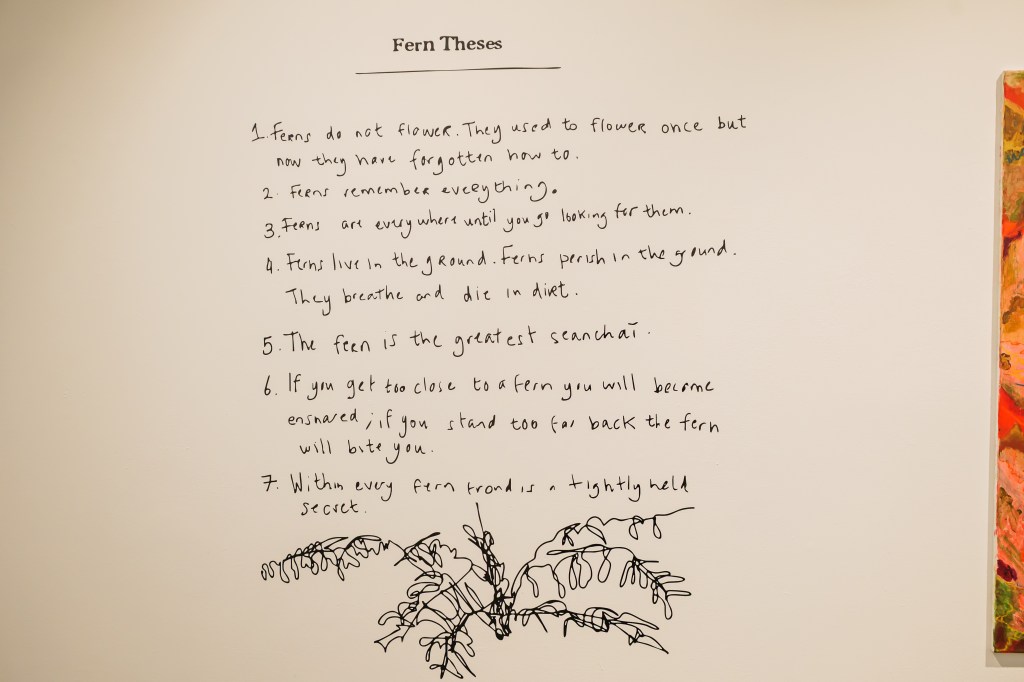 Fern Theses
1. Ferns do not flower. They used to flower once but
now they have forgotten how to.
2. Ferns remember everything.
3. Ferns are everywhere until you go looking for them.
4. Ferns live in the ground. Ferns perish in the ground.
They breathe and die in dirt.
5. The fern is the greatest seanchaí.
6. If you get too close to a fern you will become
ensnared; if you stand too far back the fern
will bite you.
7. Within every fern frond is a tightly held
secret.